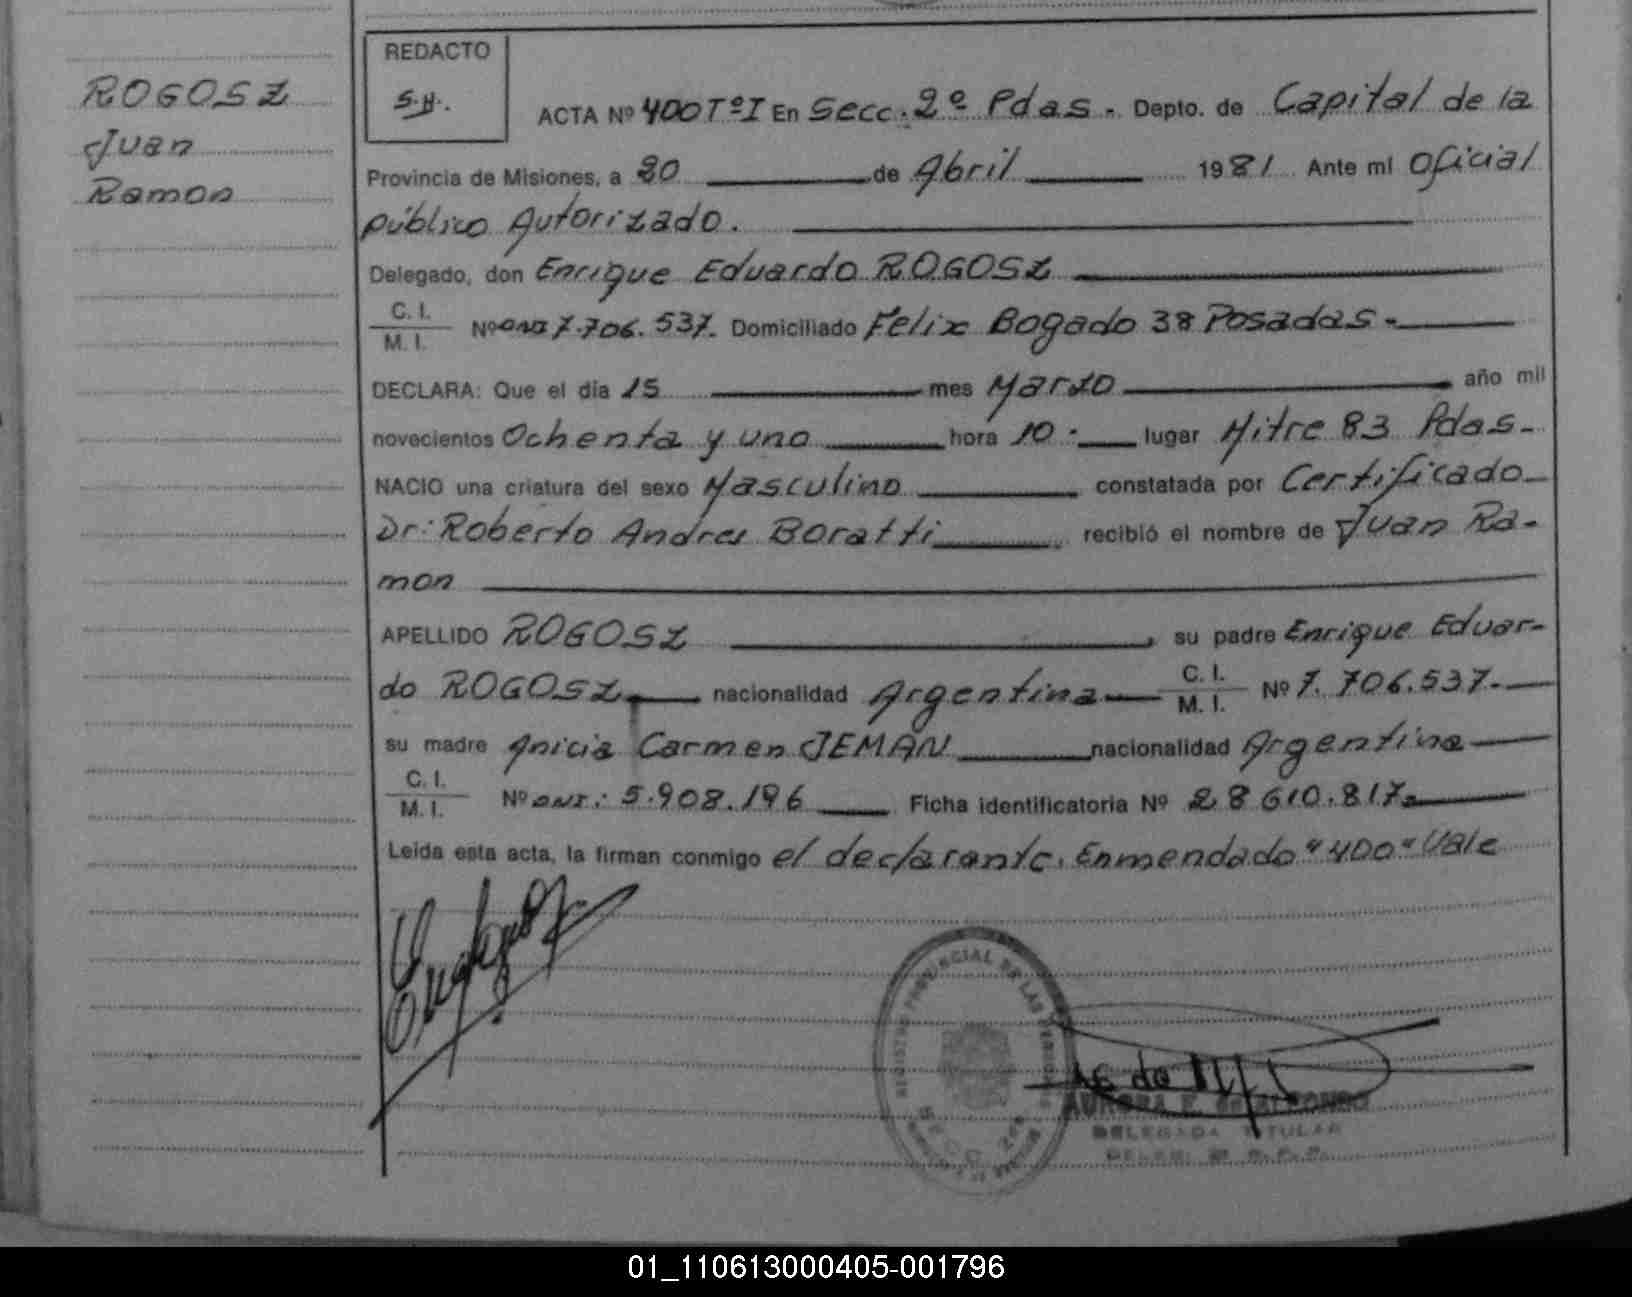 ROGOSZ
Juan
Ramon
REDACTO
S.H.
ACTA Nº 400 TºI En Secc. 2º Pdas. Depto. de Capital de la
Provincia de Misiones, a 20 de Abril 1981 Ante mi Oficial
público Autorizado.
Delegado, don Enrique Eduardo ROGOSZ
C. I.
M. I.
Nº DNI 7.706.537. Domiciliado Felix Bogado 38 Posadas.
DECLARA: Que el día 15 mes Marzo año mil
novecientos Ochenta y uno hora 10 lugar Mitre 83 Pdas.
NACIO una criatura del sexo Masculino constatada por Certificado
Dr: Roberto Andres Boratti recibió el nombre de Juan Ra-
mon
APELLIDO ROGOSZ, su padre Enrique Eduar-
do ROGOSZ nacionalidad Argentina C. I. M. I. Nº 7.706.537.
su madre Anicia Carmen JEMAN nacionalidad Argentina
C. I.
M. I.
Nº DNI: 5.908.196 Ficha identificatoria Nº 28 610.817.
Leída esta acta, la firman conmigo el declarante. Enmendado "400" Vale
REGISTRO PROVINCIAL DE LAS PERSONAS
AURORA E. de
DELEGADA TITULAR
01_110613000405-001796